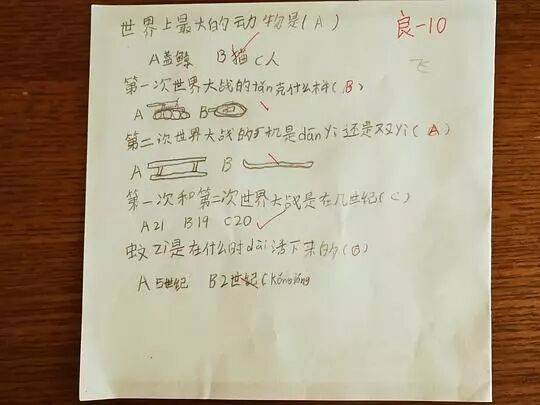 世界上最大的动物是(A)
良-10
A蓝鲸 B猫 C人
飞
第一次世界大战的tǎn克什么样(B)
A B
第二次世界大战的手机是dān yi还是双yì(A)
A B
第一次和第二次世界大战是在几世纪(C)
A21 B19 C20
蚊zi是在什么时dài活下来的(B)
A 5世纪 B2世纪 C kǒnglóng